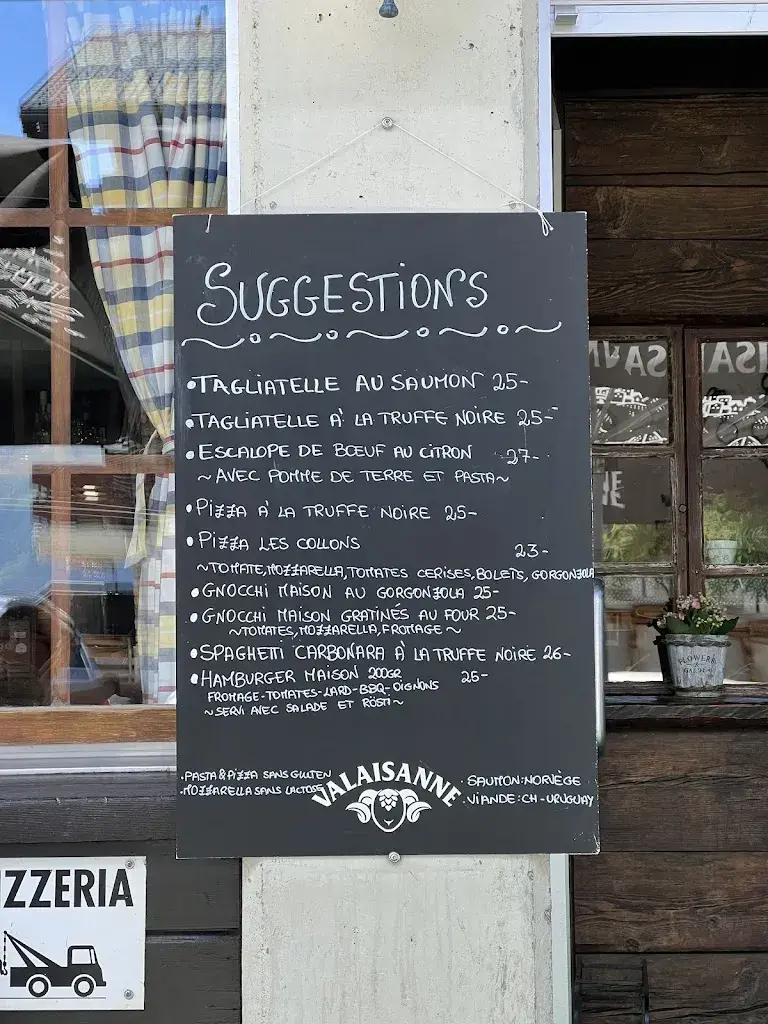 SUGGESTIONS
•TAGLIATELLE AU SAUMON 25-
•TAGLIATELLE À LA TRUFFE NOIRE 25-
•ESCALOPE DE BŒUF AU CITRON 27-
~AVEC POMME DE TERRE ET PASTA~
•PIZZA À LA TRUFFE NOIRE 25-
•PIZZA LES COLLONS 23-
~TOMATE, MOZZARELLA, TOMATES CERISES, BOLETS, GORGONZOLA
•GNOCCHI MAISON AU GORGONZOLA 25-
•GNOCCHI MAISON GRATINÉS AU FOUR 25-
~TOMATES, MOZZARELLA, FROMAGE~
•SPAGHETTI CARBONARA À LA TRUFFE NOIRE 26-
•HAMBURGER MAISON 200GR 25-
FROMAGE-TOMATES-LARD-BBQ-OIGNONS
~SERVI AVEC SALADE ET RÖSTI~
•PASTA & PIZZA SANS GLUTEN
•MOZZARELLA SANS LACTOSE
VALAISANNE
•SAUMON: NORVÈGE
•VIANDE: CH-URUGUAY
IZZERIA
FLOWERS
GARDEN